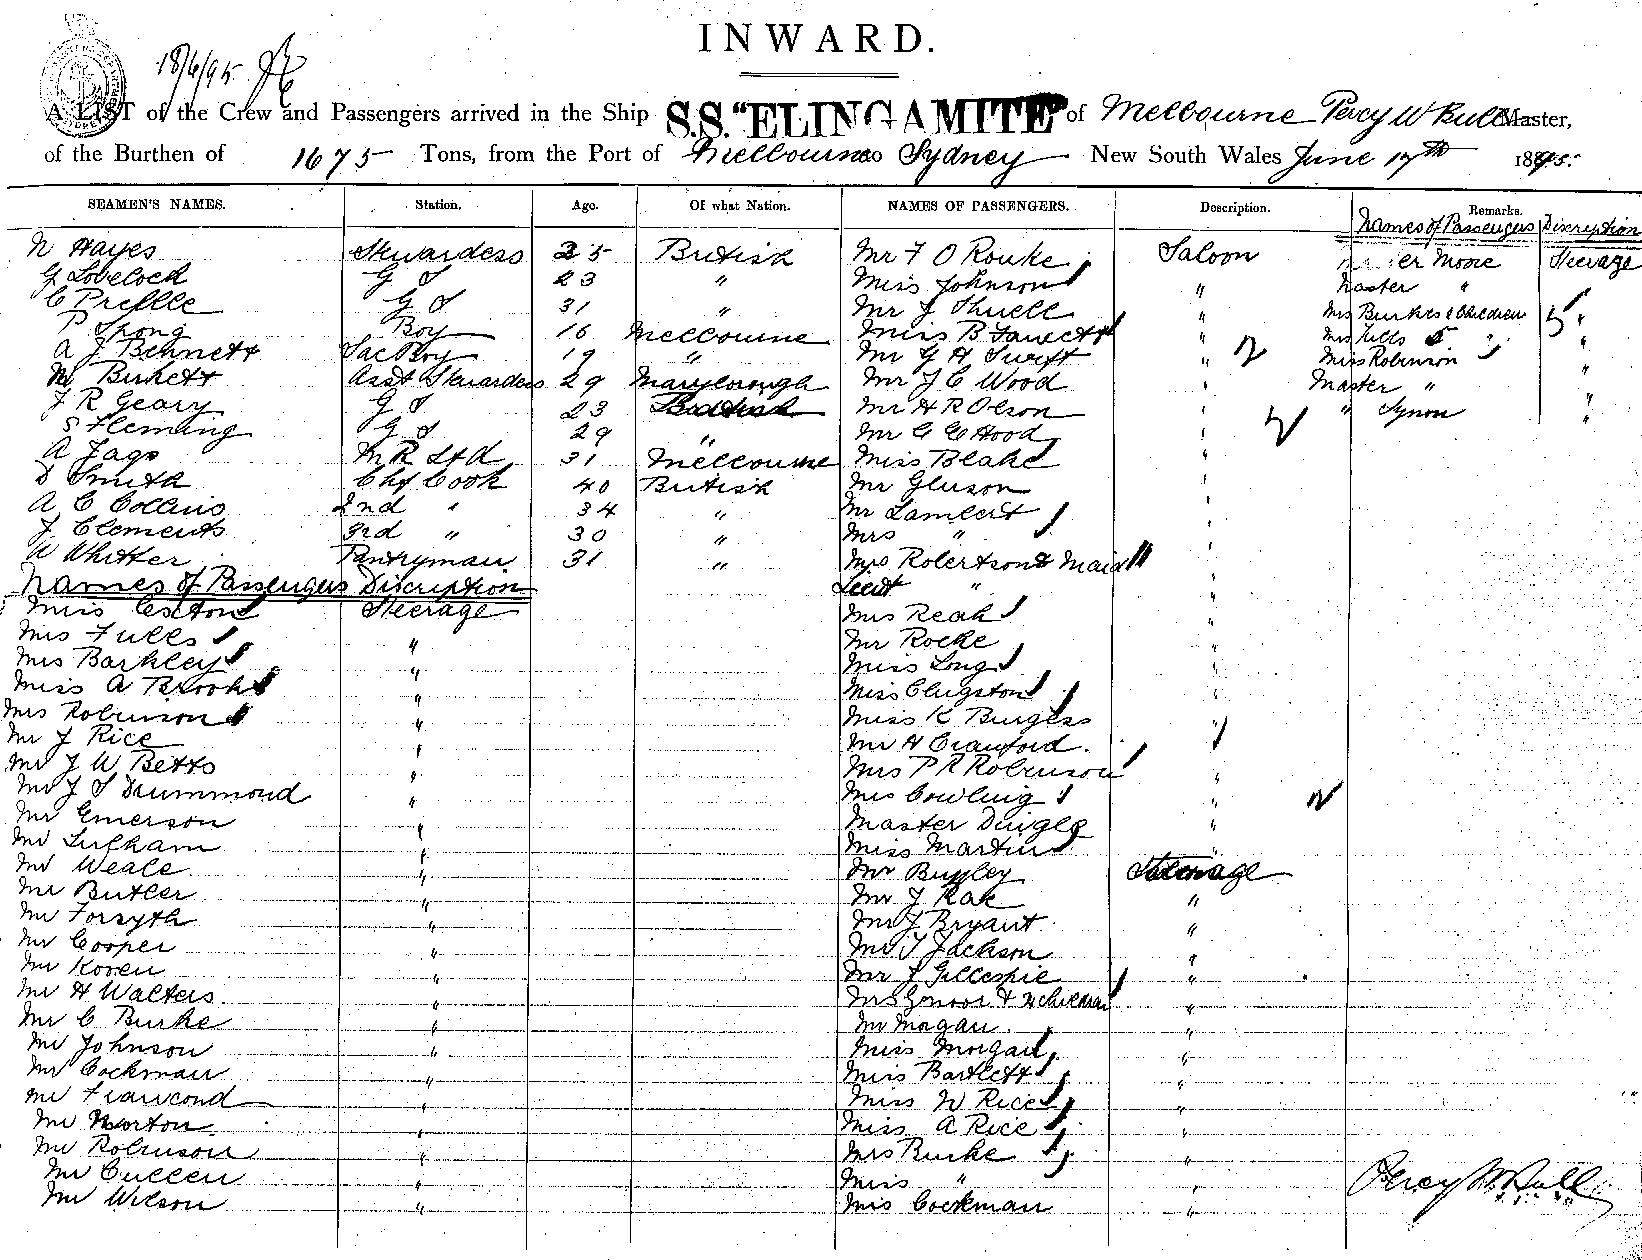 INWARD.
18/6/95
A LIST of the Crew and Passengers arrived in the Ship S.S. "ELINGAMITE" of Melbourne Percy W Bull Master,
of the Burthen of 1675 Tons, from the Port of Melbourne to Sydney New South Wales June 17th 1895.
SEAMEN'S NAMES. Station. Age. Of what Nation. NAMES OF PASSENGERS. Description. Remarks.
Names of Passengers Discription
N Hayes Stewardess 25 British Mr F O Rouke Saloon Moore Steerage
G Lovelock G S 23 " Miss Johnson " Master " "
C Prellle G S 31 " Mr J Thuell " Mrs Burkes & Children 5 "
P Spong Boy 16 Melbourne Miss B Fawcett " Mrs 5 "
A J Bennett Boy 19 " Mr G H Swift " 2 Miss Robinson "
M Birkett Asst Stewardess 29 Maryborough Mr J C Wood " Master " "
J R Geary G S 23 British Mr H R Olson " " Synon "
S Fleming G S 29 " Mr C E Hood "
A Jago M R Std 31 Melbourne Miss Blake "
S Smith Chf Cook 40 British Mr Gleeson "
A C Collins 2nd " 34 " Mr Lambert "
J Clements 3rd " 30 " Mrs " "
W Whitter Pantryman 31 " Mrs Robertson & Maid "
Names of Passengers Discription Lieut " "
Miss Steerage Mrs Reah "
Mrs Fulls " Mr Rocke "
Mrs Barkley " Miss Long "
Miss A Brooks " Miss Clugston "
Mrs Robinson " Miss K Burgess "
Mr J Rice " Mr H Crawford "
Mr J W Betts " Mrs P R Robinson "
Mr J S Drummond " Mrs Cowling "
Mr Emerson " Master Dingle "
Mr Lulham " Miss Martin "
Mr Weale " Mr Steerage
Mr Butler " Mr J Rak "
Mr Forsyth " Mr J Bryant "
Mr Cooper " Mr T Jackson "
Mr Koven " Mr J Gillespie "
Mr H Walters " Mrs & 2 Children "
Mr C Burke " Mr Morgan "
Mr Johnson " Miss Morgan "
Mr Cockman " Miss Bartlett "
Mr " Miss W Rice "
Mr Norton " Miss A Rice "
Mr Robinson " Mrs Burke "
Mr Cullen " Miss " "
Mr Wilson " Mis Cockman "
Percy W Bull